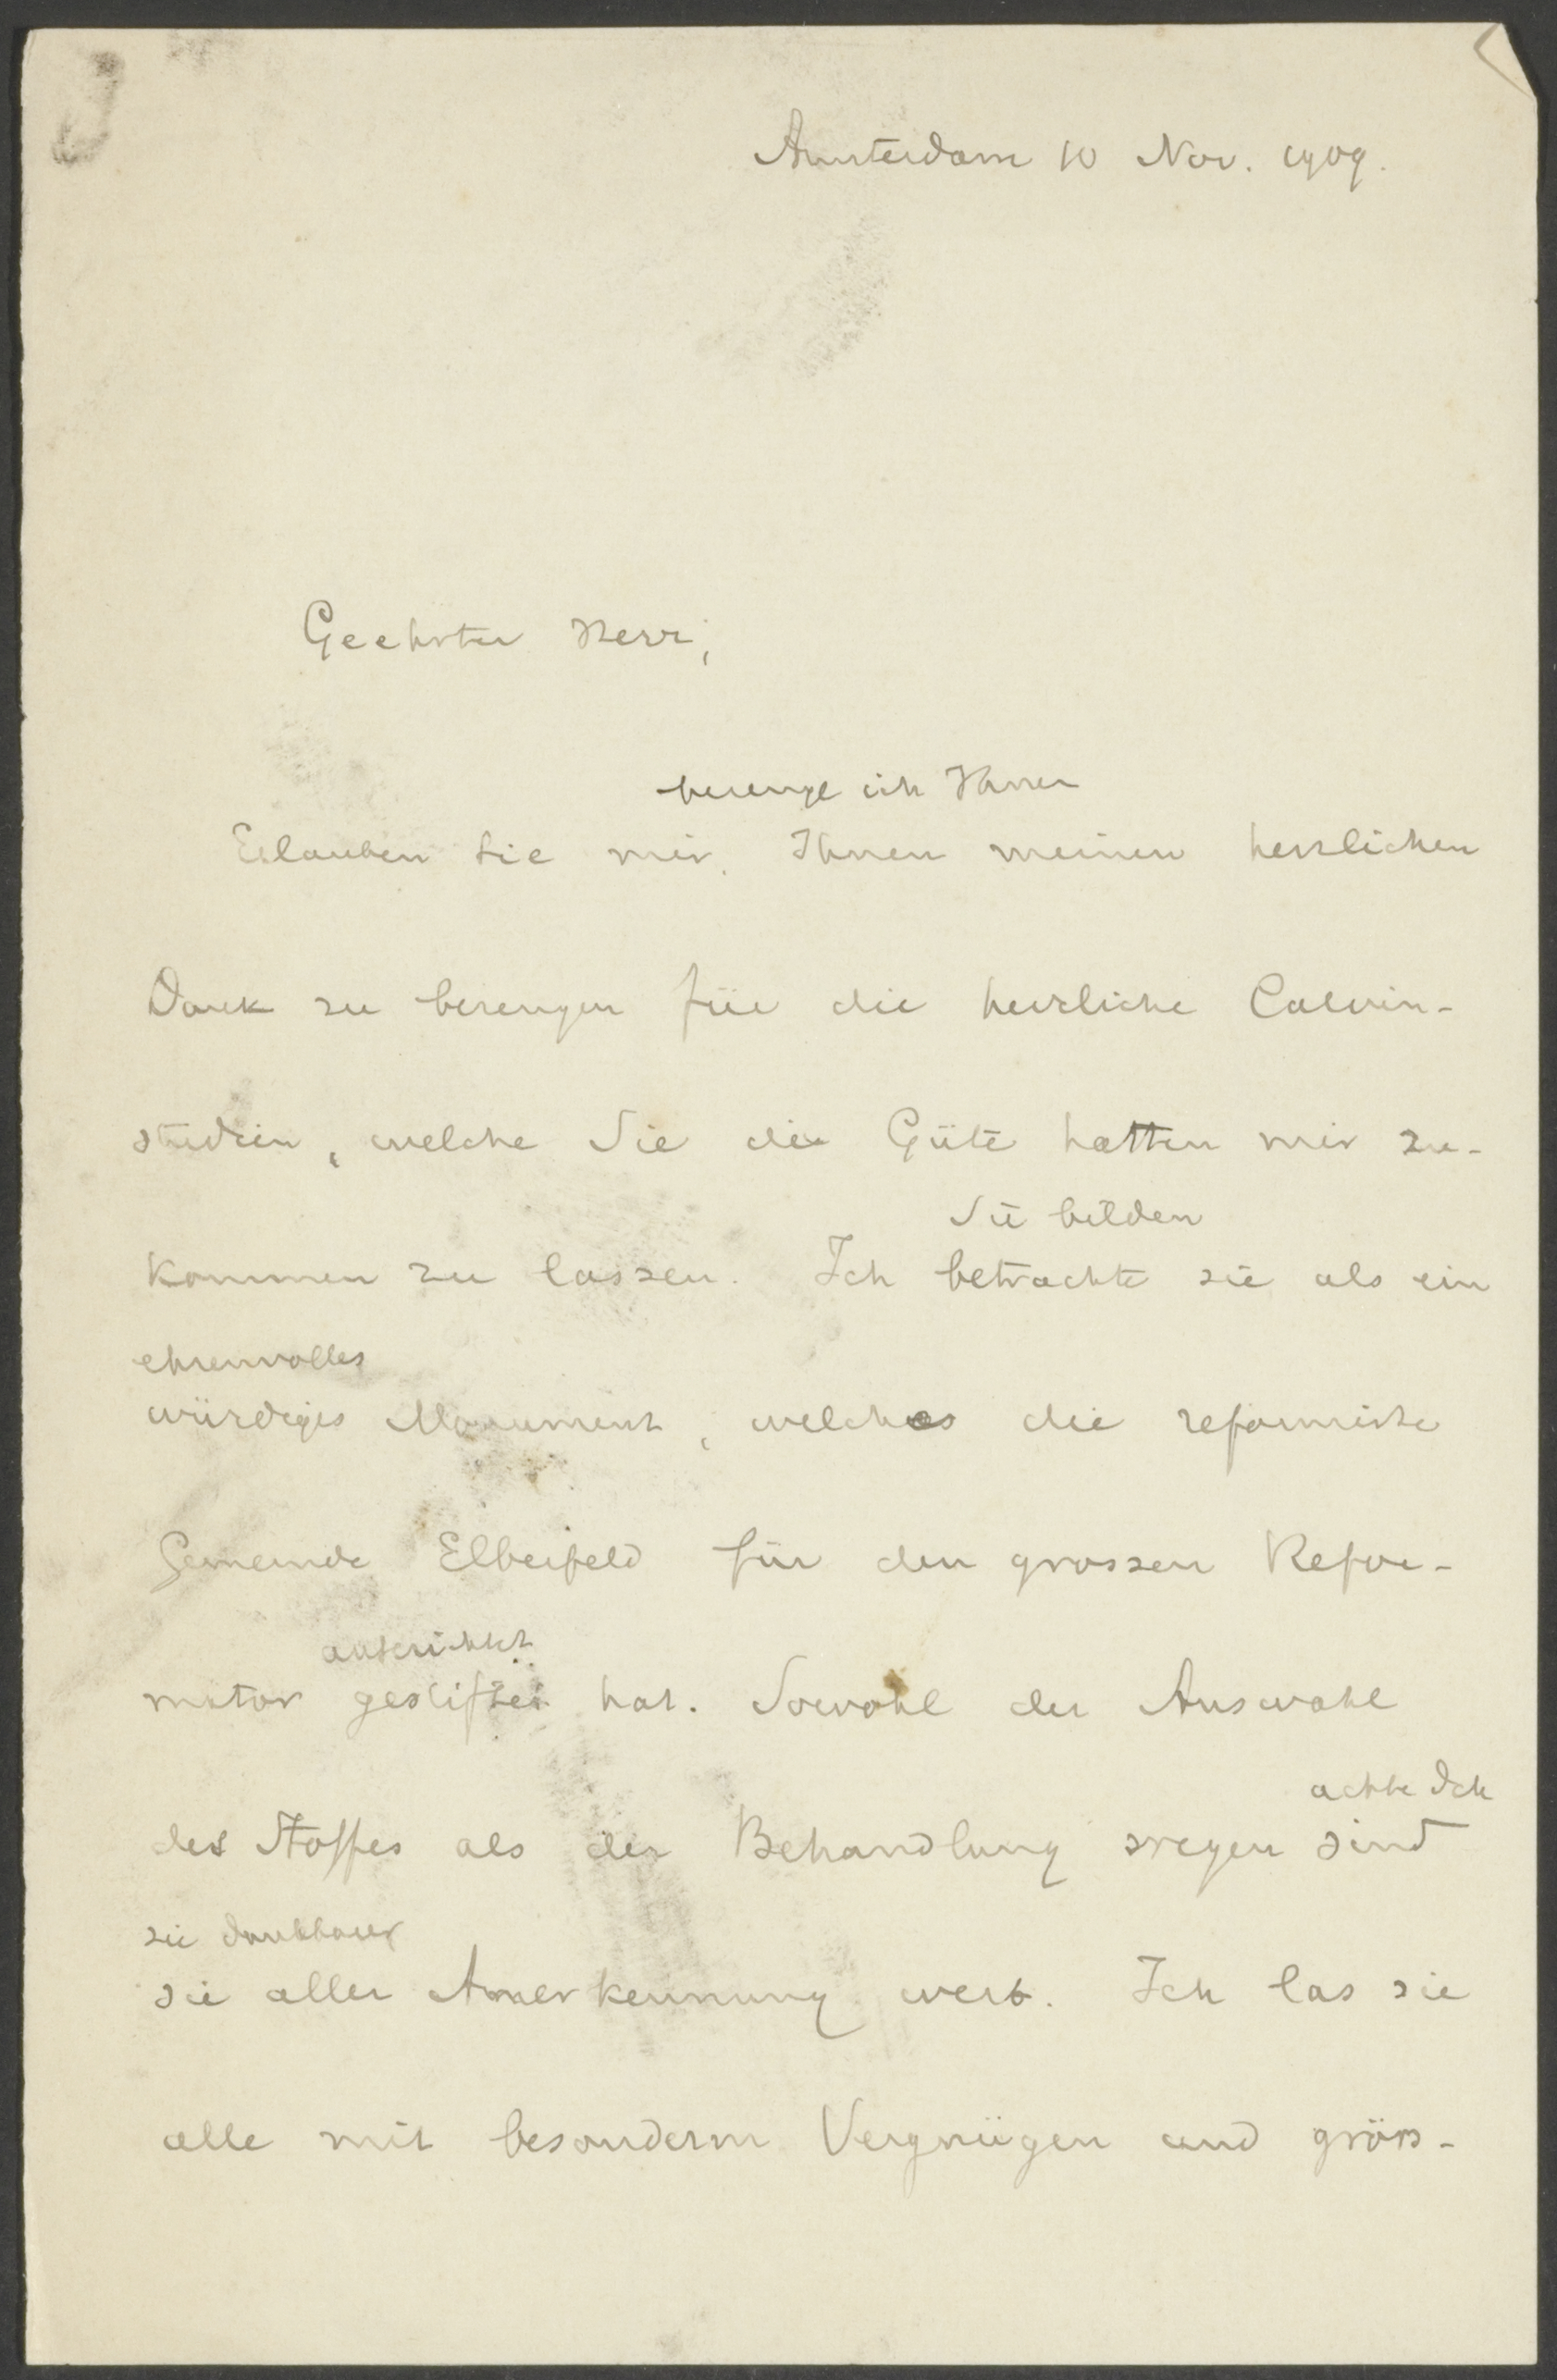 Amsterdam 10 Nov. 1909.
Geehrter Herr,
bezeuge ich Ihnen
Erlauben Sie mir, Ihnen meinen herzlichen
Dank zu bezeugen für die herrliche Calvin-
studien, welche Sie die Güte hatten mir zu-
Sie bilden
kommen zu lassen. Ich betrachte sie als ein
ehrenvolles
würdiges Monument, welches die reformirte
Gemeinde Elberfeld für den grossen Refor-
mator gestiftet hat. Sowohl der Auswahl
achte Ich
des Stoffes als der Behandlung wegen sind
sie dankbarer
sie aller Anerkennung wert. Ich las sie
alle mit besonderm Vergnügen und gröss-